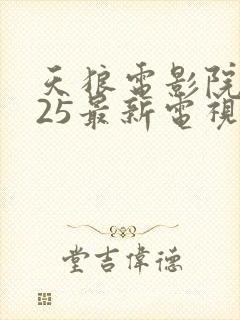 天狼電影院
25最新電視
堂吉偉德